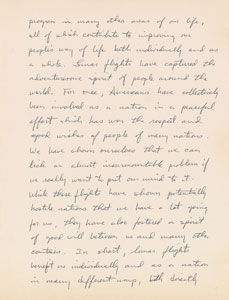 progress in many other areas of our life,
all of which contribute to improving our
people's way of life both individually and as
a whole. Lunar flights have captured the
adventuresome spirit of people around the
world. For once, Americans have collectively
been involved as a nation in a peaceful
effort which has won the respect and
good wishes of people of many nations.
We have shown ourselves that we can
lick an almost insurmountable problem if
we really want to put our mind to it.
While these flights have shown potentially
hostile nations that we have a lot going
for us, they have also fostered a spirit
of good will between us and many other
countries. In short, lunar flight
benefit us individually and as a nation
in many different ways, both directly